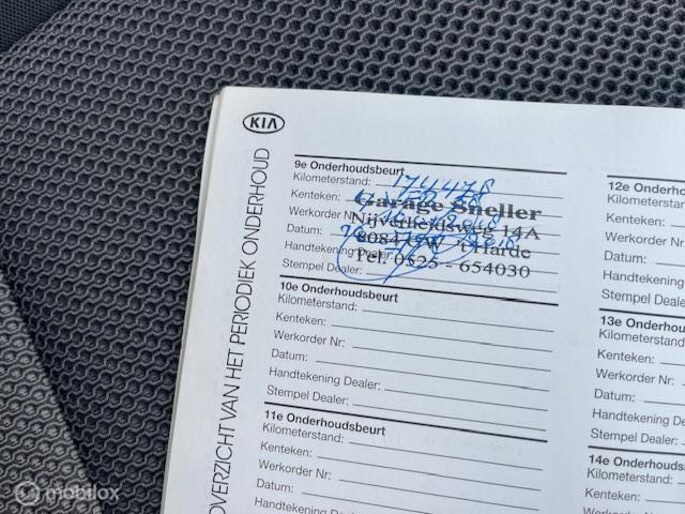 KIA
OVERZICHT VAN HET PERIODIEK ONDERHOUD
9e Onderhoudsbeurt
Kilometerstand: 174478
Kenteken:
Werkorder Nr:
Datum:
Handtekening Dealer:
Stempel Dealer:
Garage Sneller
Nijverheidsweg 14A
8084 GW 't Harde
Tel. 0525 - 654030
10e Onderhoudsbeurt
Kilometerstand:
Kenteken:
Werkorder Nr:
Datum:
Handtekening Dealer:
Stempel Dealer:
11e Onderhoudsbeurt
Kilometerstand:
Kenteken:
Werkorder Nr:
Datum:
Handtekening
12e Onderho
Kilometerstan
Kenteken:
Werkorder Nr:
Datum:
Handtekening
Stempel Deale
13e Onderhou
Kilometerstand
Kenteken:
Werkorder Nr:
Datum:
Handtekening D
Stempel Dealer
14e Onderhou
Kilometerstand:
Kenteken:
Werkorder Nr:
mobilox